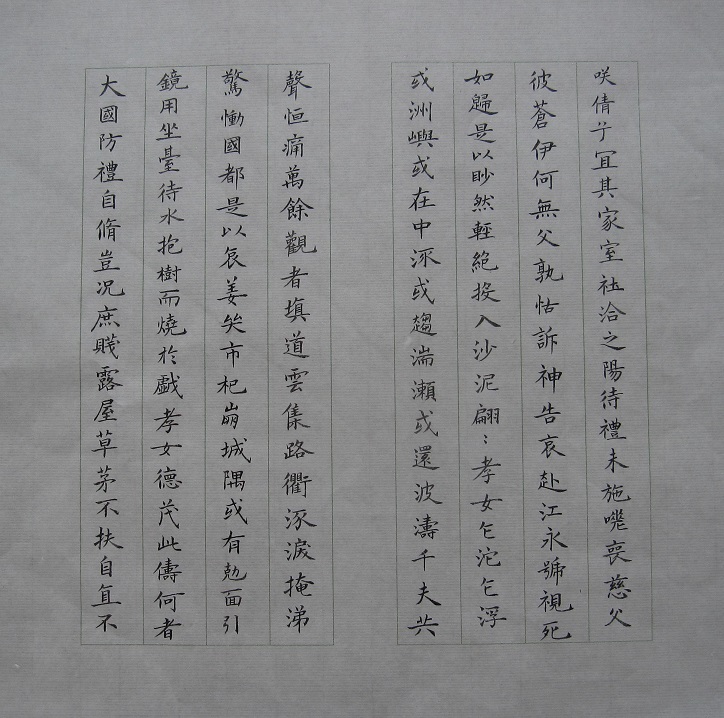 咲倩兮冝其家室在洽之陽待禮未施嗟喪慈父
彼蒼伊何無父孰怙訴神告哀赴江永號視死
如歸是以眇然輕絕投入沙泥翩〻孝女乍沈乍浮
或洲嶼或在中流或趨湍瀨或還波濤千夫共
聲恒痛萬餘觀者填道雲集路衢流淚掩涕
驚慟國都是以哀姜哭市杞崩城隅或有尅面引
鏡用坐臺待水抱樹而燒於戲孝女德茂此儔何者
大國防禮自脩豈况庶賤露屋草茅不扶自直不